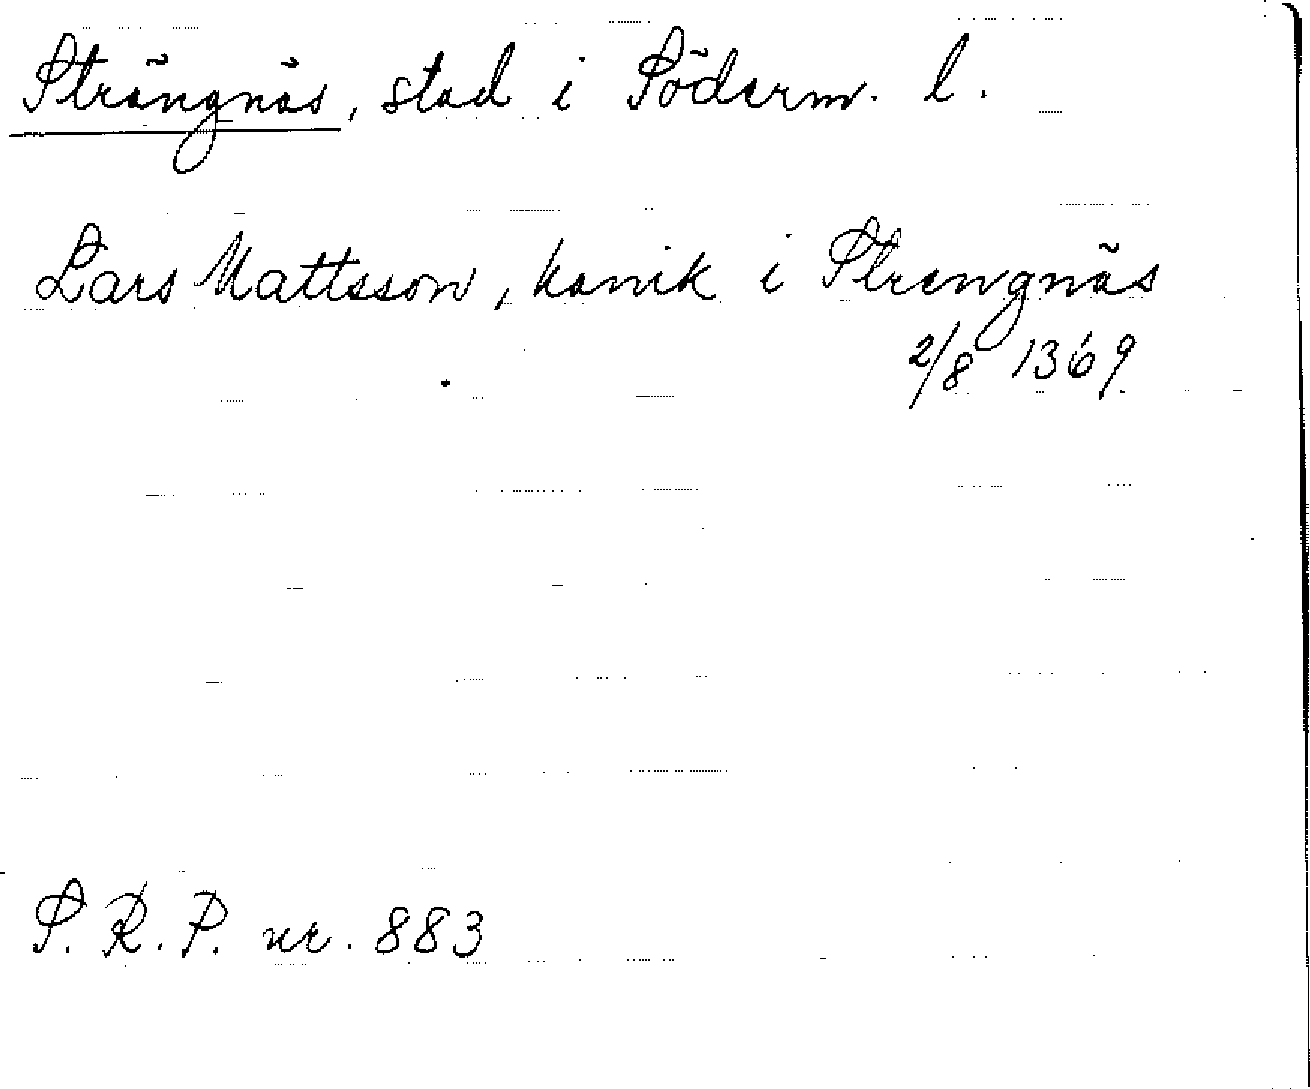 Strängnäs, stad i Söderm. l.
Lars Mattsson, kanik i Strengnäs
2/8 1369
S. R. P. nr. 883